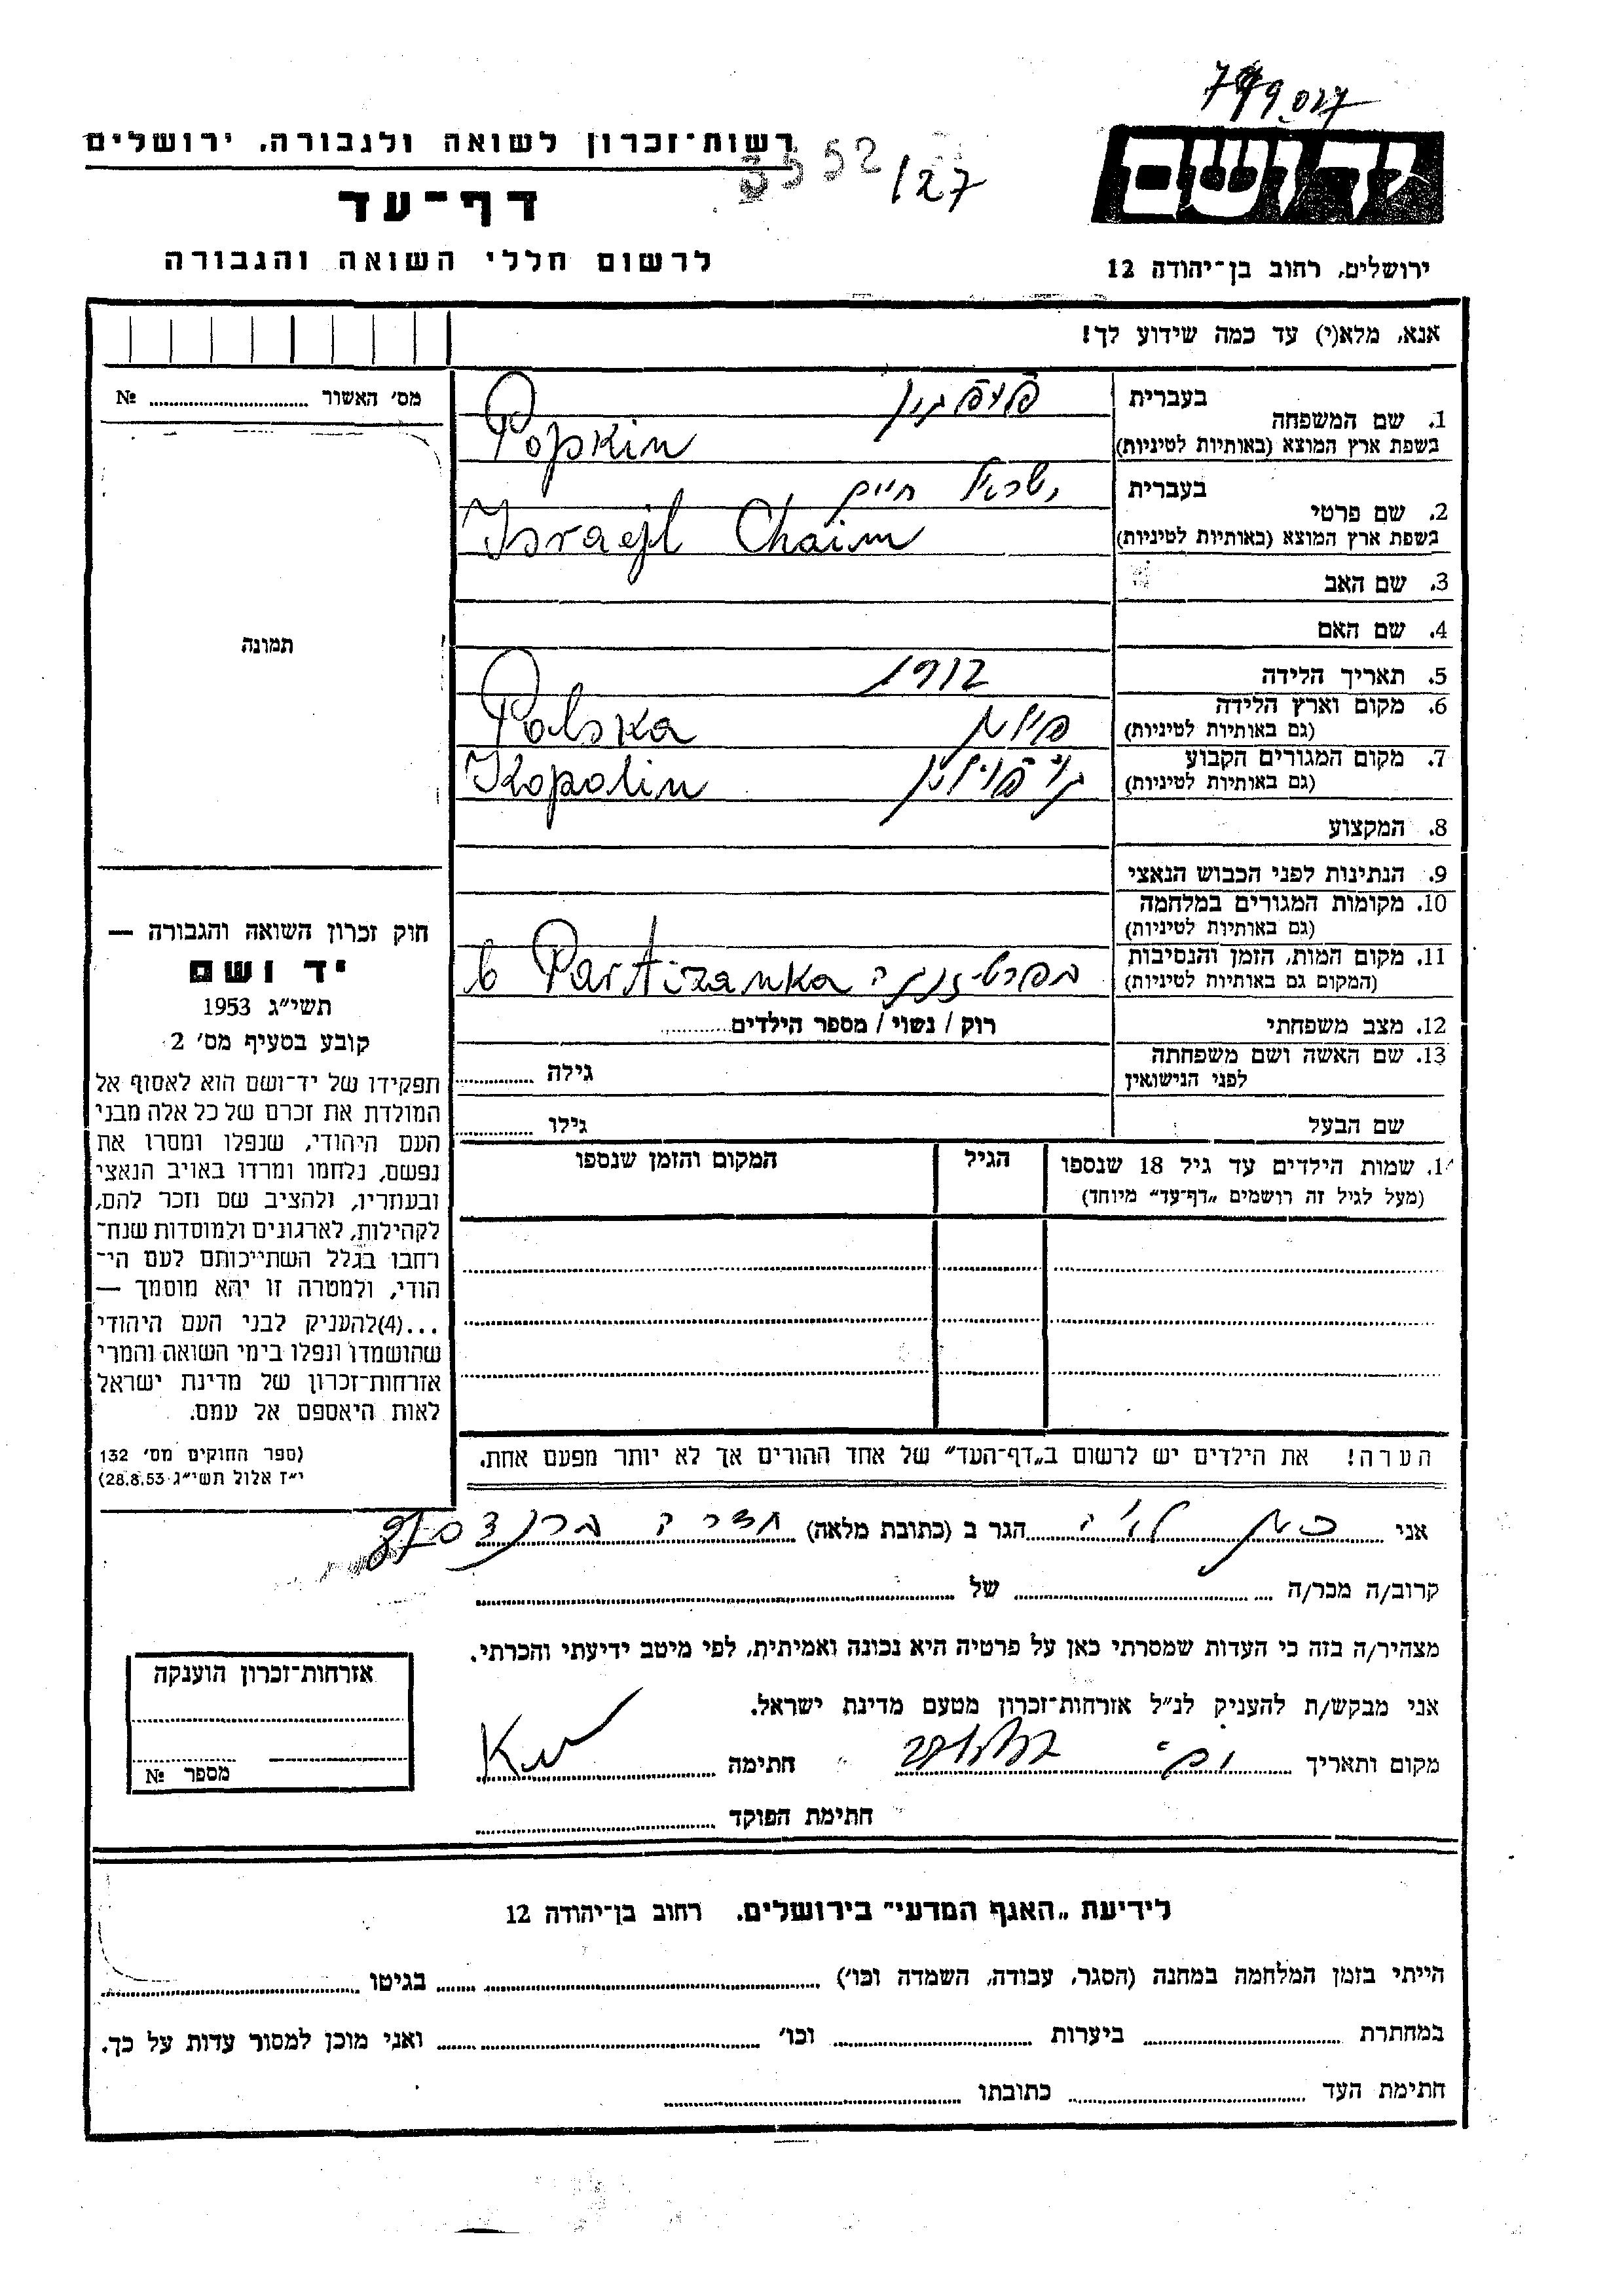 רשות־זכרון לשואה ולגבורה, ירושלים
3552/27
דף־עד
לרשום חללי השואה והגבורה
יד ושם
ירושלים, רחוב בן־יהודה 12
אנא, מלא(י) עד כמה שידוע לך!
מס׳ האשור № 
תמונה
1. שם המשפחה
בעברית
בשפת ארץ המוצא (באותיות לטיניות)
Popkin
2. שם פרטי
בעברית ישראל חיים
בשפת ארץ המוצא (באותיות לטיניות)
Israejl Chaim
3. שם האב
4. שם האם
5. תאריך הלידה 1912
6. מקום וארץ הלידה
(גם באותיות לטיניות) פולין Polska
7. מקום המגורים הקבוע
(גם באותיות לטיניות) Kopolin
8. המקצוע
9. הנתינות לפני הכבוש הנאצי
10. מקומות המגורים במלחמה
(גם באותיות לטיניות)
11. מקום המות, הזמן והנסיבות
(המקום גם באותיות לטיניות) בפרטיזנקה b Partizanka
12. מצב משפחתי רוק / נשוי / מספר הילדים
13. שם האשה ושם משפחתה
לפני הנישואין גילה
שם הבעל גילו
שמות הילדים עד גיל 18 שנספו
(מעל לגיל זה רושמים „דף־עד” מיוחד)
הגיל
המקום והזמן שנספו
הערה! את הילדים יש לרשום ב„דף־העד” של אחד ההורים אך לא יותר מפעם אחת.
חוק זכרון השואה והגבורה —
יד ושם
תשי״ג 1953
קובע בסעיף מס׳ 2
תפקידו של יד־ושם הוא לאסוף אל
המולדת את זכרם של כל אלה מבני
העם היהודי, שנפלו ומסרו את
נפשם, נלחמו ומרדו באויב הנאצי
ובעוזריו, ולהציב שם וזכר להם,
לקהילות, לארגונים ולמוסדות שנח־
רבו בגלל השתייכותם לעם הי־
הודי, ולמטרה זו יהא מוסמך —
...(4)להעניק לבני העם היהודי
שהושמדו ונפלו בימי השואה והמרי
אזרחות־זכרון של מדינת ישראל
לאות היאספם אל עמם.
(ספר החוקים מס׳ 132
י״ז אלול תשי״ג 28.8.53)
אני הגר ב (כתובת מלאה) חדרה
קרוב/ה מכר/ה של
מצהיר/ה בזה כי העדות שמסרתי כאן על פרטיה היא נכונה ואמיתית, לפי מיטב ידיעתי והכרתי.
אני מבקש/ת להעניק לנ״ל אזרחות־זכרון מטעם מדינת ישראל.
מקום ותאריך חתימה
חתימת הפוקד
אזרחות־זכרון הוענקה
מספר №
לידיעת „האגף המדעי” בירושלים. רחוב בן־יהודה 12
הייתי בזמן המלחמה במחנה (הסגר, עבודה, השמדה וכו׳) בגיטו
במחתרת ביערות וכו׳ ואני מוכן למסור עדות על כך.
חתימת העד כתובתו